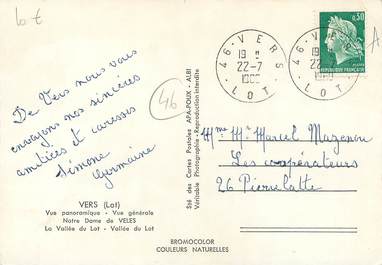 10 €
46 - VERS
19 H
22-7
LOT
46 - VERS
19
22-7
LOT
0,30
REPUBLIQUE FRANÇAISE
A
De Vers nous vous
envoyons nos sincères
amitiés et caresses
Simone
Germaine
46
Sté des Cartes Postales APA-POUX - ALBI
Véritable Photographie - Reproduction interdite
Mme Mr Marcel Mazenou
Les coopérateurs
26 Pierrelatte
VERS (Lot)
Vue panoramique - Vue générale
Notre Dame de VELES
La Vallée du Lot - Vallée du Lot
BROMOCOLOR
COULEURS NATURELLES